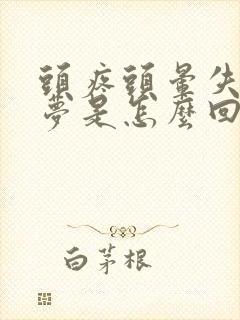 頭疼頭暈失
夢是怎麼回
白茅根